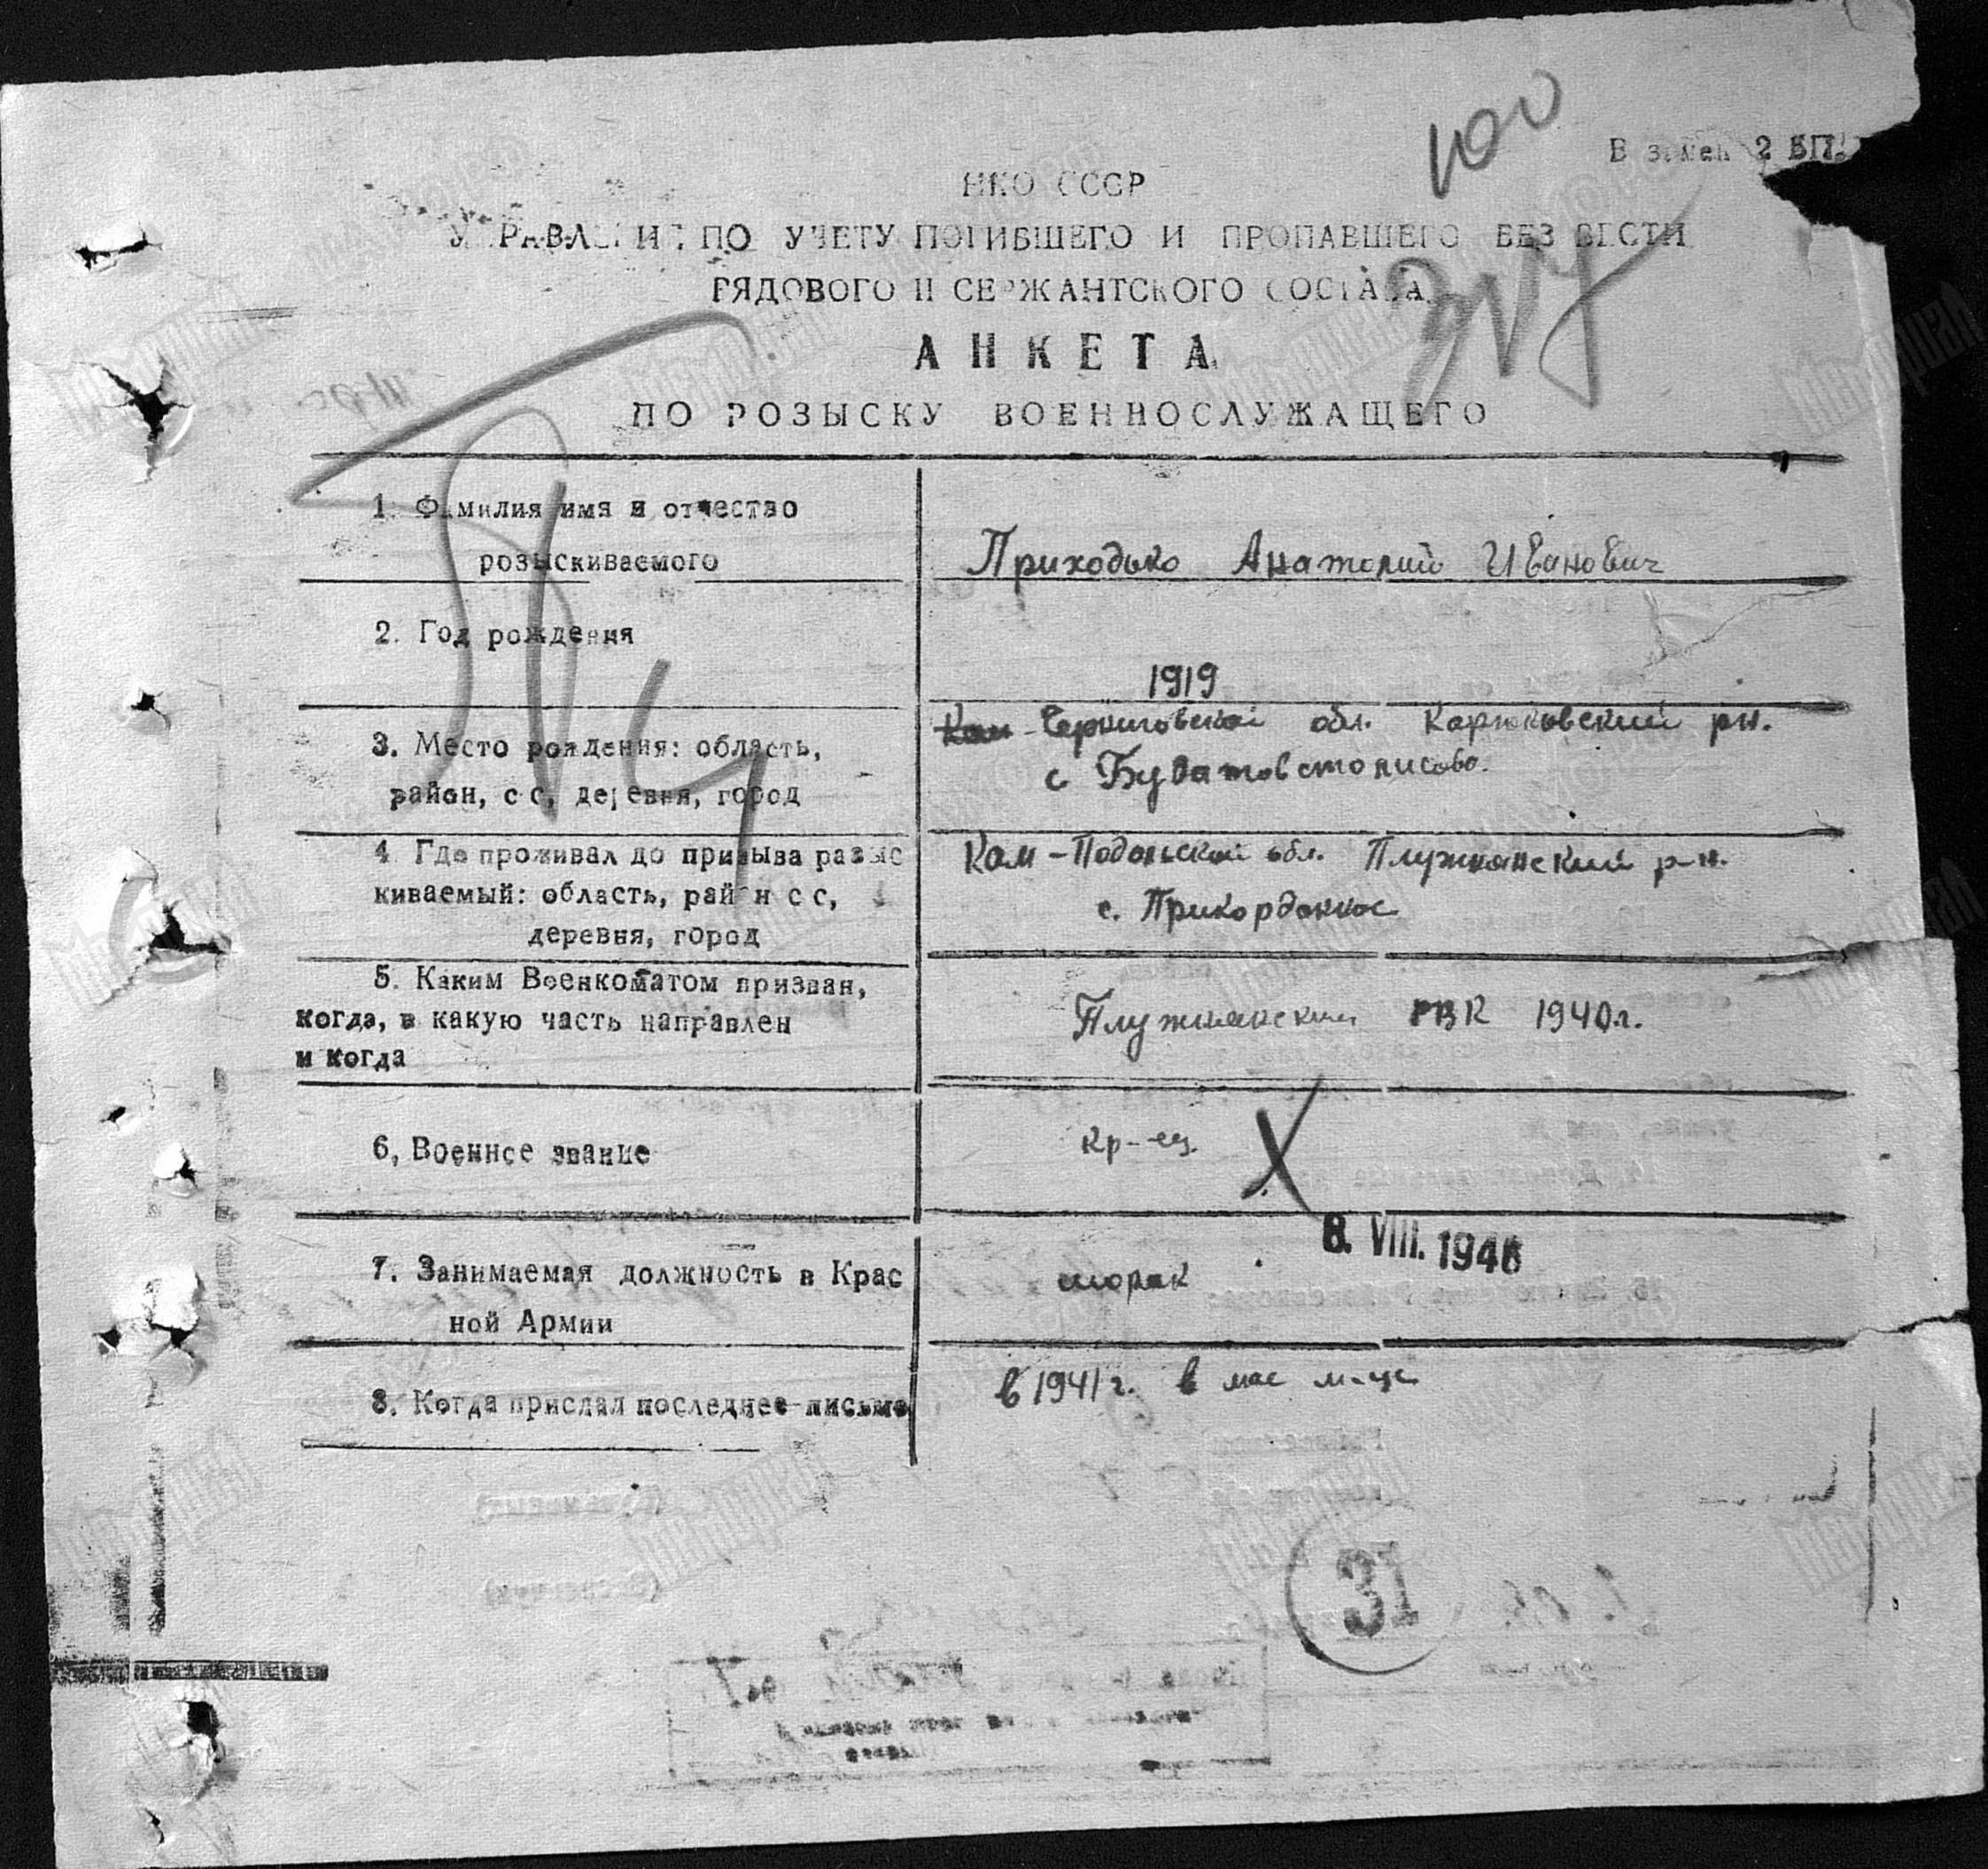 100
В замен 2 БП.
НКО СССР
УПРАВЛЕНИЕ ПО УЧЕТУ ПОГИБШЕГО И ПРОПАВШЕГО БЕЗ ВЕСТИ
РЯДОВОГО И СЕРЖАНТСКОГО СОСТАВА
АНКЕТА
ПО РОЗЫСКУ ВОЕННОСЛУЖАЩЕГО
1. Фамилия имя и отчество
розыскиваемого
Приходько Анатолий Иванович
2. Год рождения
1919
3. Место рождения: область,
район, с с, деревня, город
Кам - Черниговской обл. Карюковский рн.
с
4. Где проживал до призыва разыс
киваемый: область, район с с,
деревня, город
Кам-Подольской обл. Плужнянский р-н.
с. Прикордонное
5. Каким Военкоматом призван,
когда, в какую часть направлен
и когда
Плужнянским РВК 1940г.
6, Военнсе звание
кр-ец.
8. VIII. 1946
7. Занимаемая должность в Крас
ной Армии
моряк
8. Когда прислал последнее письмо
в 1941г. в мае м-це
31